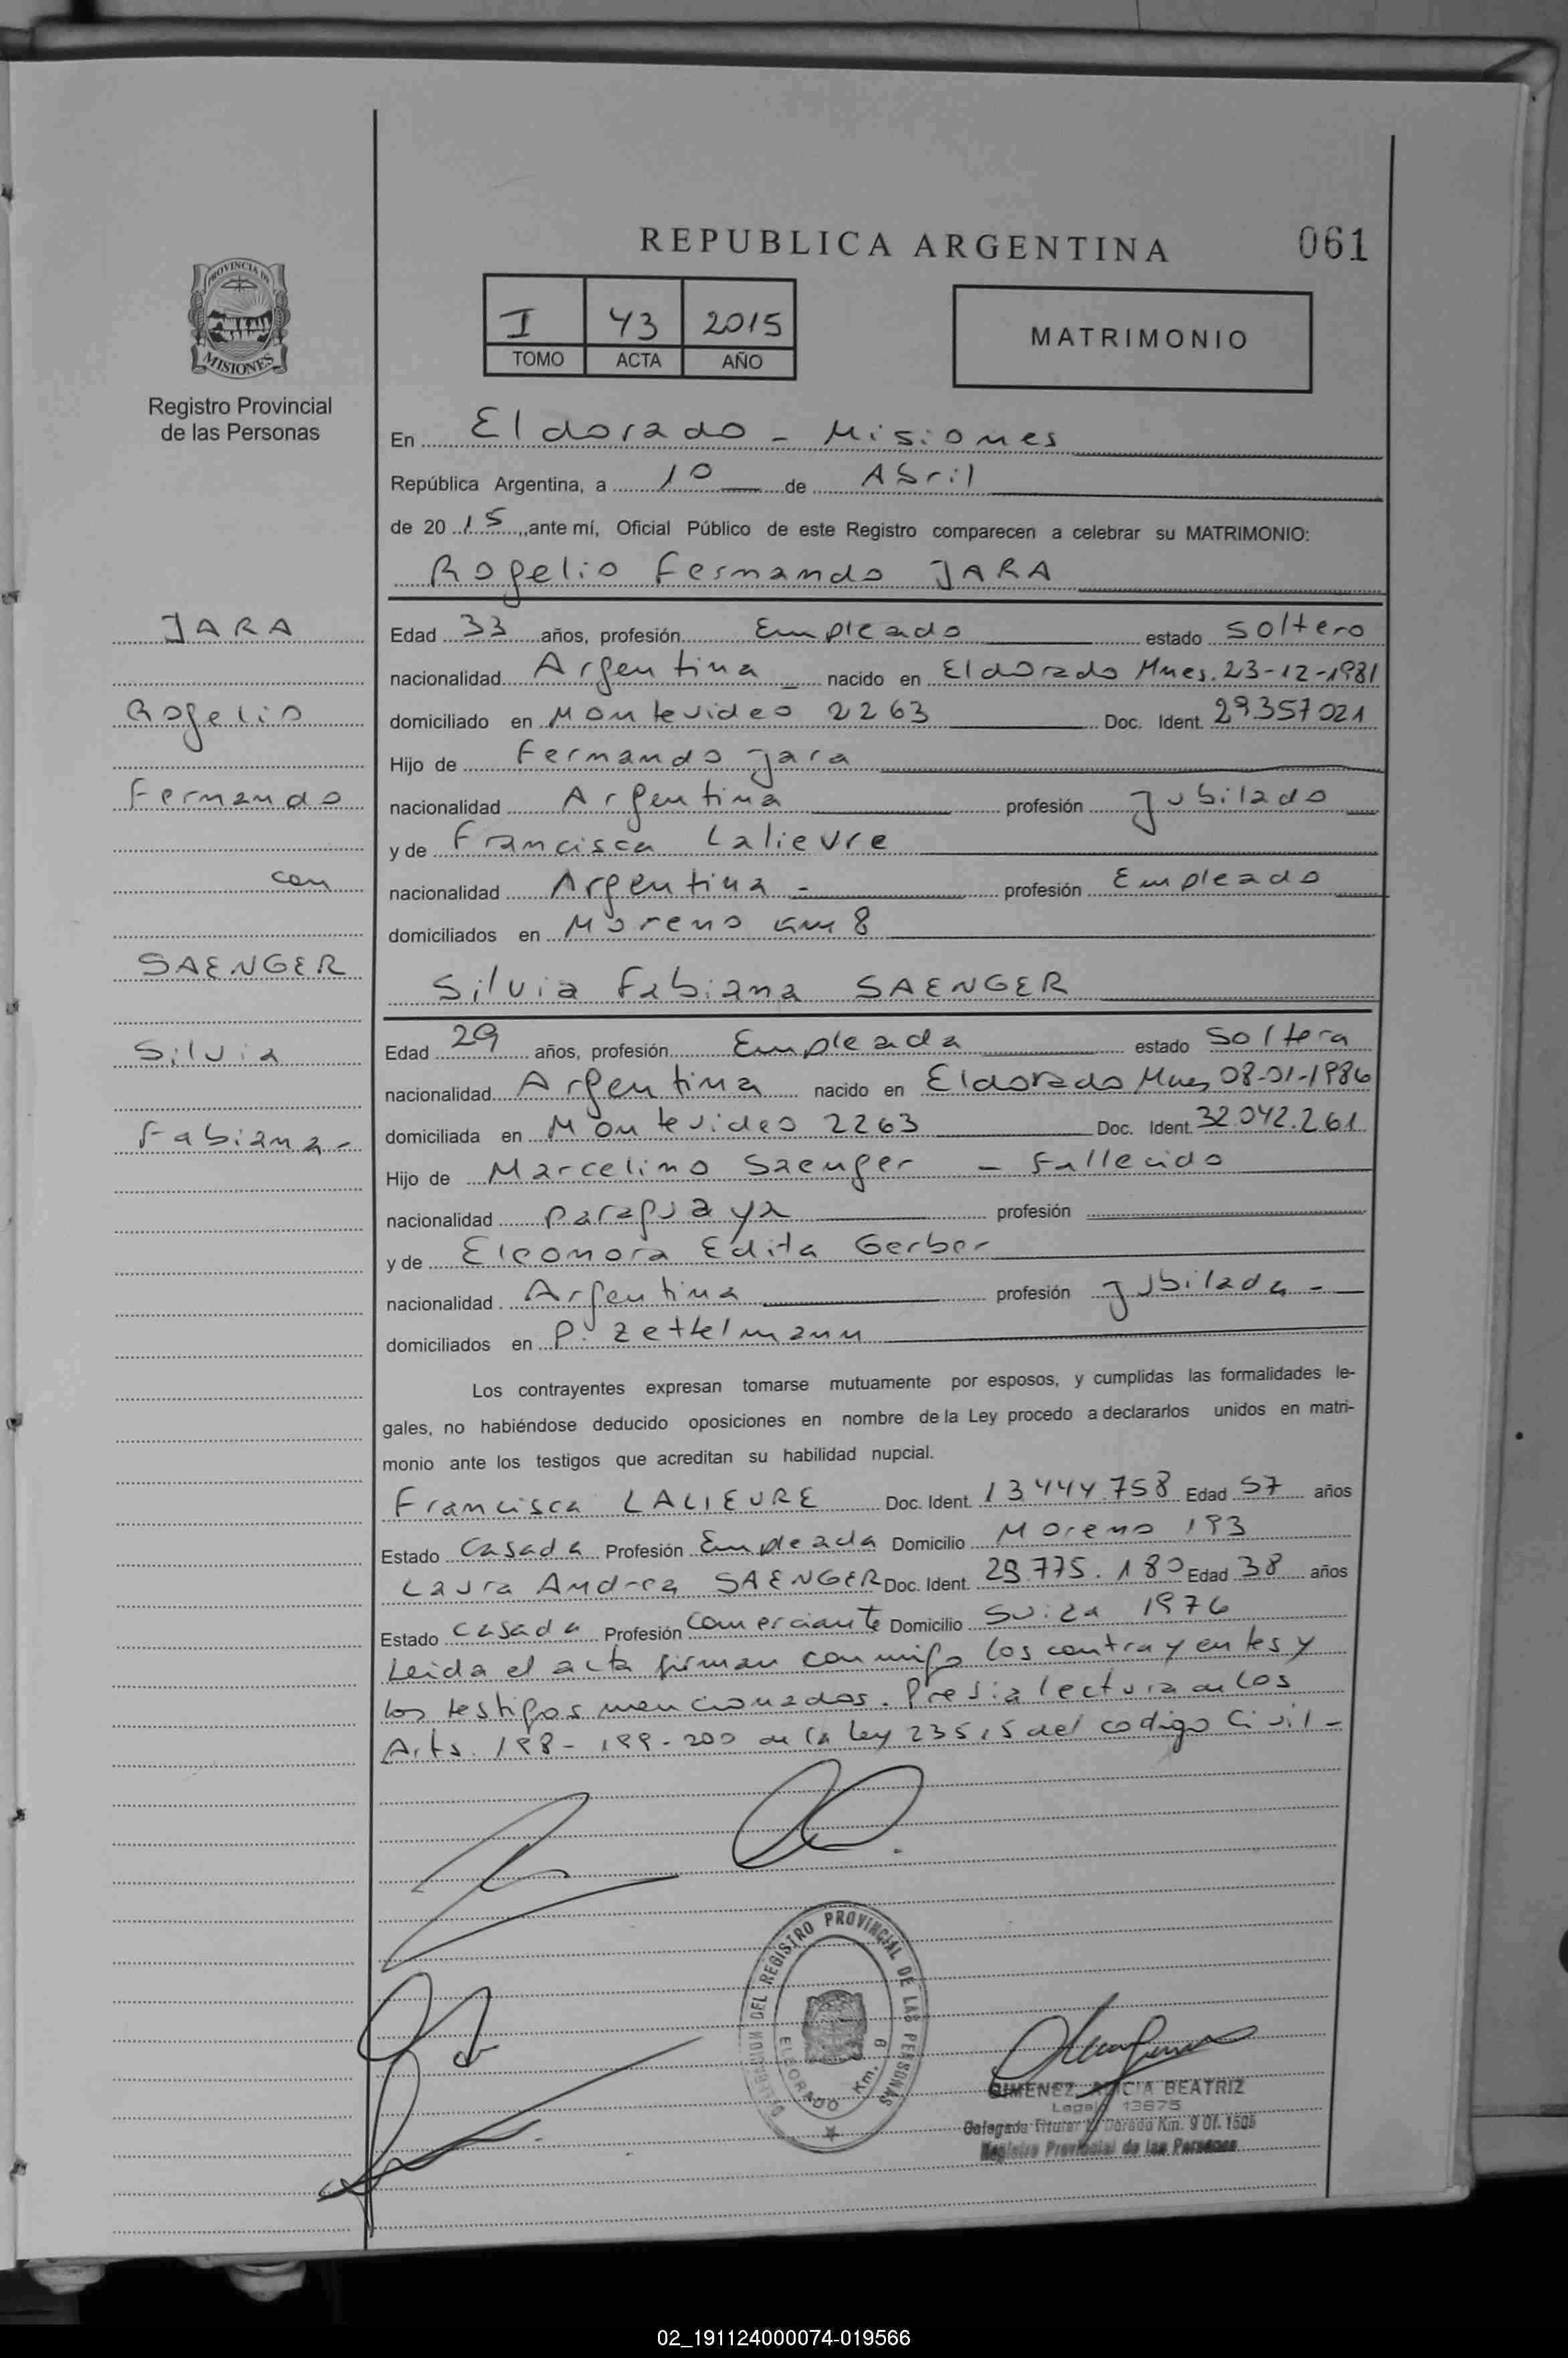 REPUBLICA ARGENTINA
061
PROVINCIA DE
MISIONES
Registro Provincial
de las Personas
I 43 2015
TOMO ACTA AÑO
MATRIMONIO
En Eldorado - Misiones
República Argentina, a 10 de Abril
de 20 15 ,ante mí, Oficial Público de este Registro comparecen a celebrar su MATRIMONIO:
Rogelio Fernando JARA
JARA
Rogelio
Fernando
con
SAENGER
Silvia
Fabiana-
Edad 33 años, profesión Empleado estado soltero
nacionalidad Argentina nacido en Eldorado Mnes. 23-12-1981
domiciliado en Montevideo 2263 Doc. Ident. 29.357021
Hijo de Fernando Jara
nacionalidad Argentina profesión Jubilado
y de Francisca Lalievre
nacionalidad Argentina - profesión Empleado
domiciliados en Moreno km 8
Silvia Fabiana SAENGER
Edad 29 años, profesión Empleada estado Soltera
nacionalidad Argentina nacido en Eldorado Mnes 08-01-1986
domiciliada en Montevideo 2263 Doc. Ident. 32.042.261
Hijo de Marcelino Saenger - Fallecido
nacionalidad paraguaya profesión
y de Eleonora Edita Gerber
nacionalidad Argentina profesión Jubilada -
domiciliados en P. Zettelmann
Los contrayentes expresan tomarse mutuamente por esposos, y cumplidas las formalidades le-
gales, no habiéndose deducido oposiciones en nombre de la Ley procedo a declararlos unidos en matri-
monio ante los testigos que acreditan su habilidad nupcial.
Francisca LALIEVRE Doc. Ident. 13.444.758 Edad 57 años
Estado Casada Profesión Empleada Domicilio Moreno 193
Laura Andrea SAENGER Doc. Ident. 29.775.180 Edad 38 años
Estado Casada Profesión Comerciante Domicilio Suiza 1976
Leida el acta firman conmigo los contrayentes y
los testigos mencionados. Previa lectura de los
Arts. 198- 199-200 de la Ley 23515 del codigo Civil -
DELEGACION DEL REGISTRO PROVINCIAL DE LAS PERSONAS
ELDORADO Km.
GIMENEZ, ALICIA BEATRIZ
Legajo 13675
Delegada Titular El Dorado Km. 9 Of. 1505
Registro Provincial de las Personas
02_191124000074-019566